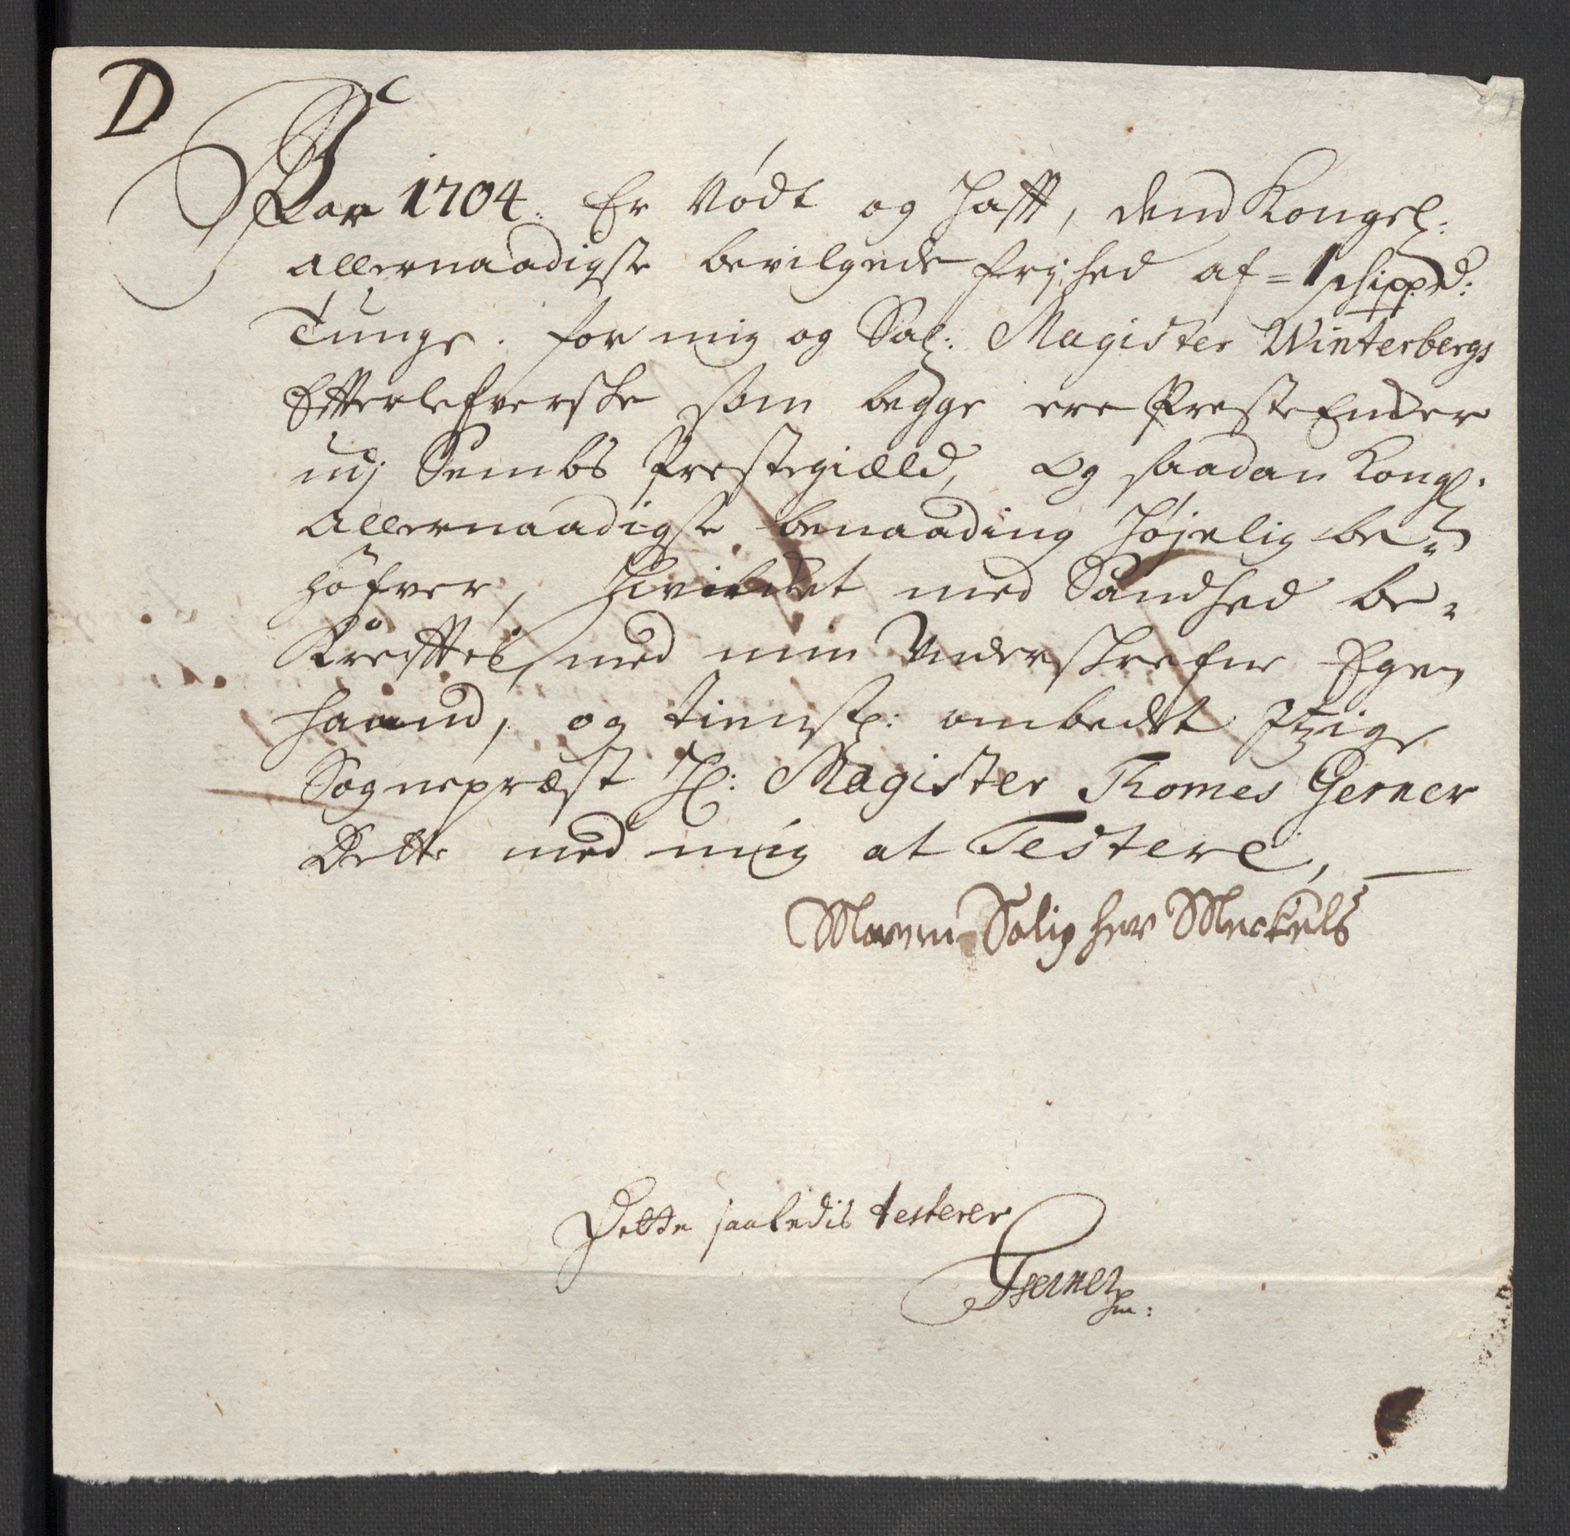 D
For 1704. Er Nødt og Hafft, dend Kongel:
Allernaadigste bevilgede frjhed af = 1 schippd:
Tunge. for mig og Sal: Magister Winterbergs
Efterlefverske som begge ere Preste Encker
udj Sembs Prestegiæld, og saadan Kongl.
Allernaadigste benaading Højelig be-
höfver, Hvilcket med Sandhed be-
Kræfftes, med min Underskrefne Egen
haand, og tienstl: ombedet Itzige
Sognepræst Hr: Magister Thomes Gerner
Dette med mig at Testere,
Maren Salig her Meckels
Dette saaledis testerer
TGerner